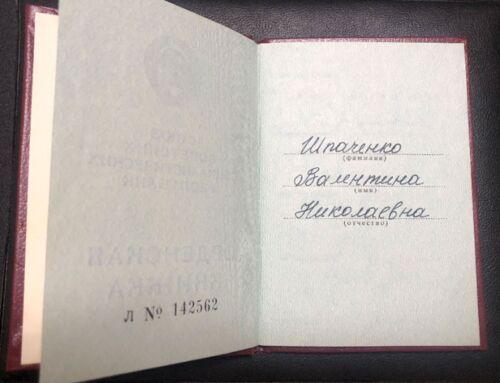 Л № 142562
Шпаченко
(фамилия)
Валентина
(имя)
Николаевна
(отчество)